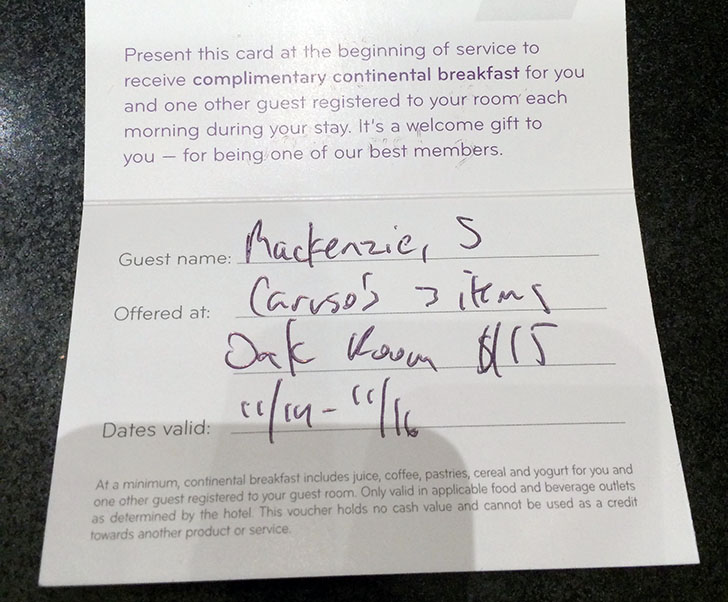 Present this card at the beginning of service to
receive complimentary continental breakfast for you
and one other guest registered to your room each
morning during your stay. It's a welcome gift to
you — for being one of our best members.
Guest name: Mackenzie, S
Offered at: Caruso's 3 items
Oak Room $15
Dates valid: 11/14 - 11/16
At a minimum, continental breakfast includes juice, coffee, pastries, cereal and yogurt for you and
one other guest registered to your guest room. Only valid in applicable food and beverage outlets
as determined by the hotel. This voucher holds no cash value and cannot be used as a credit
towards another product or service.